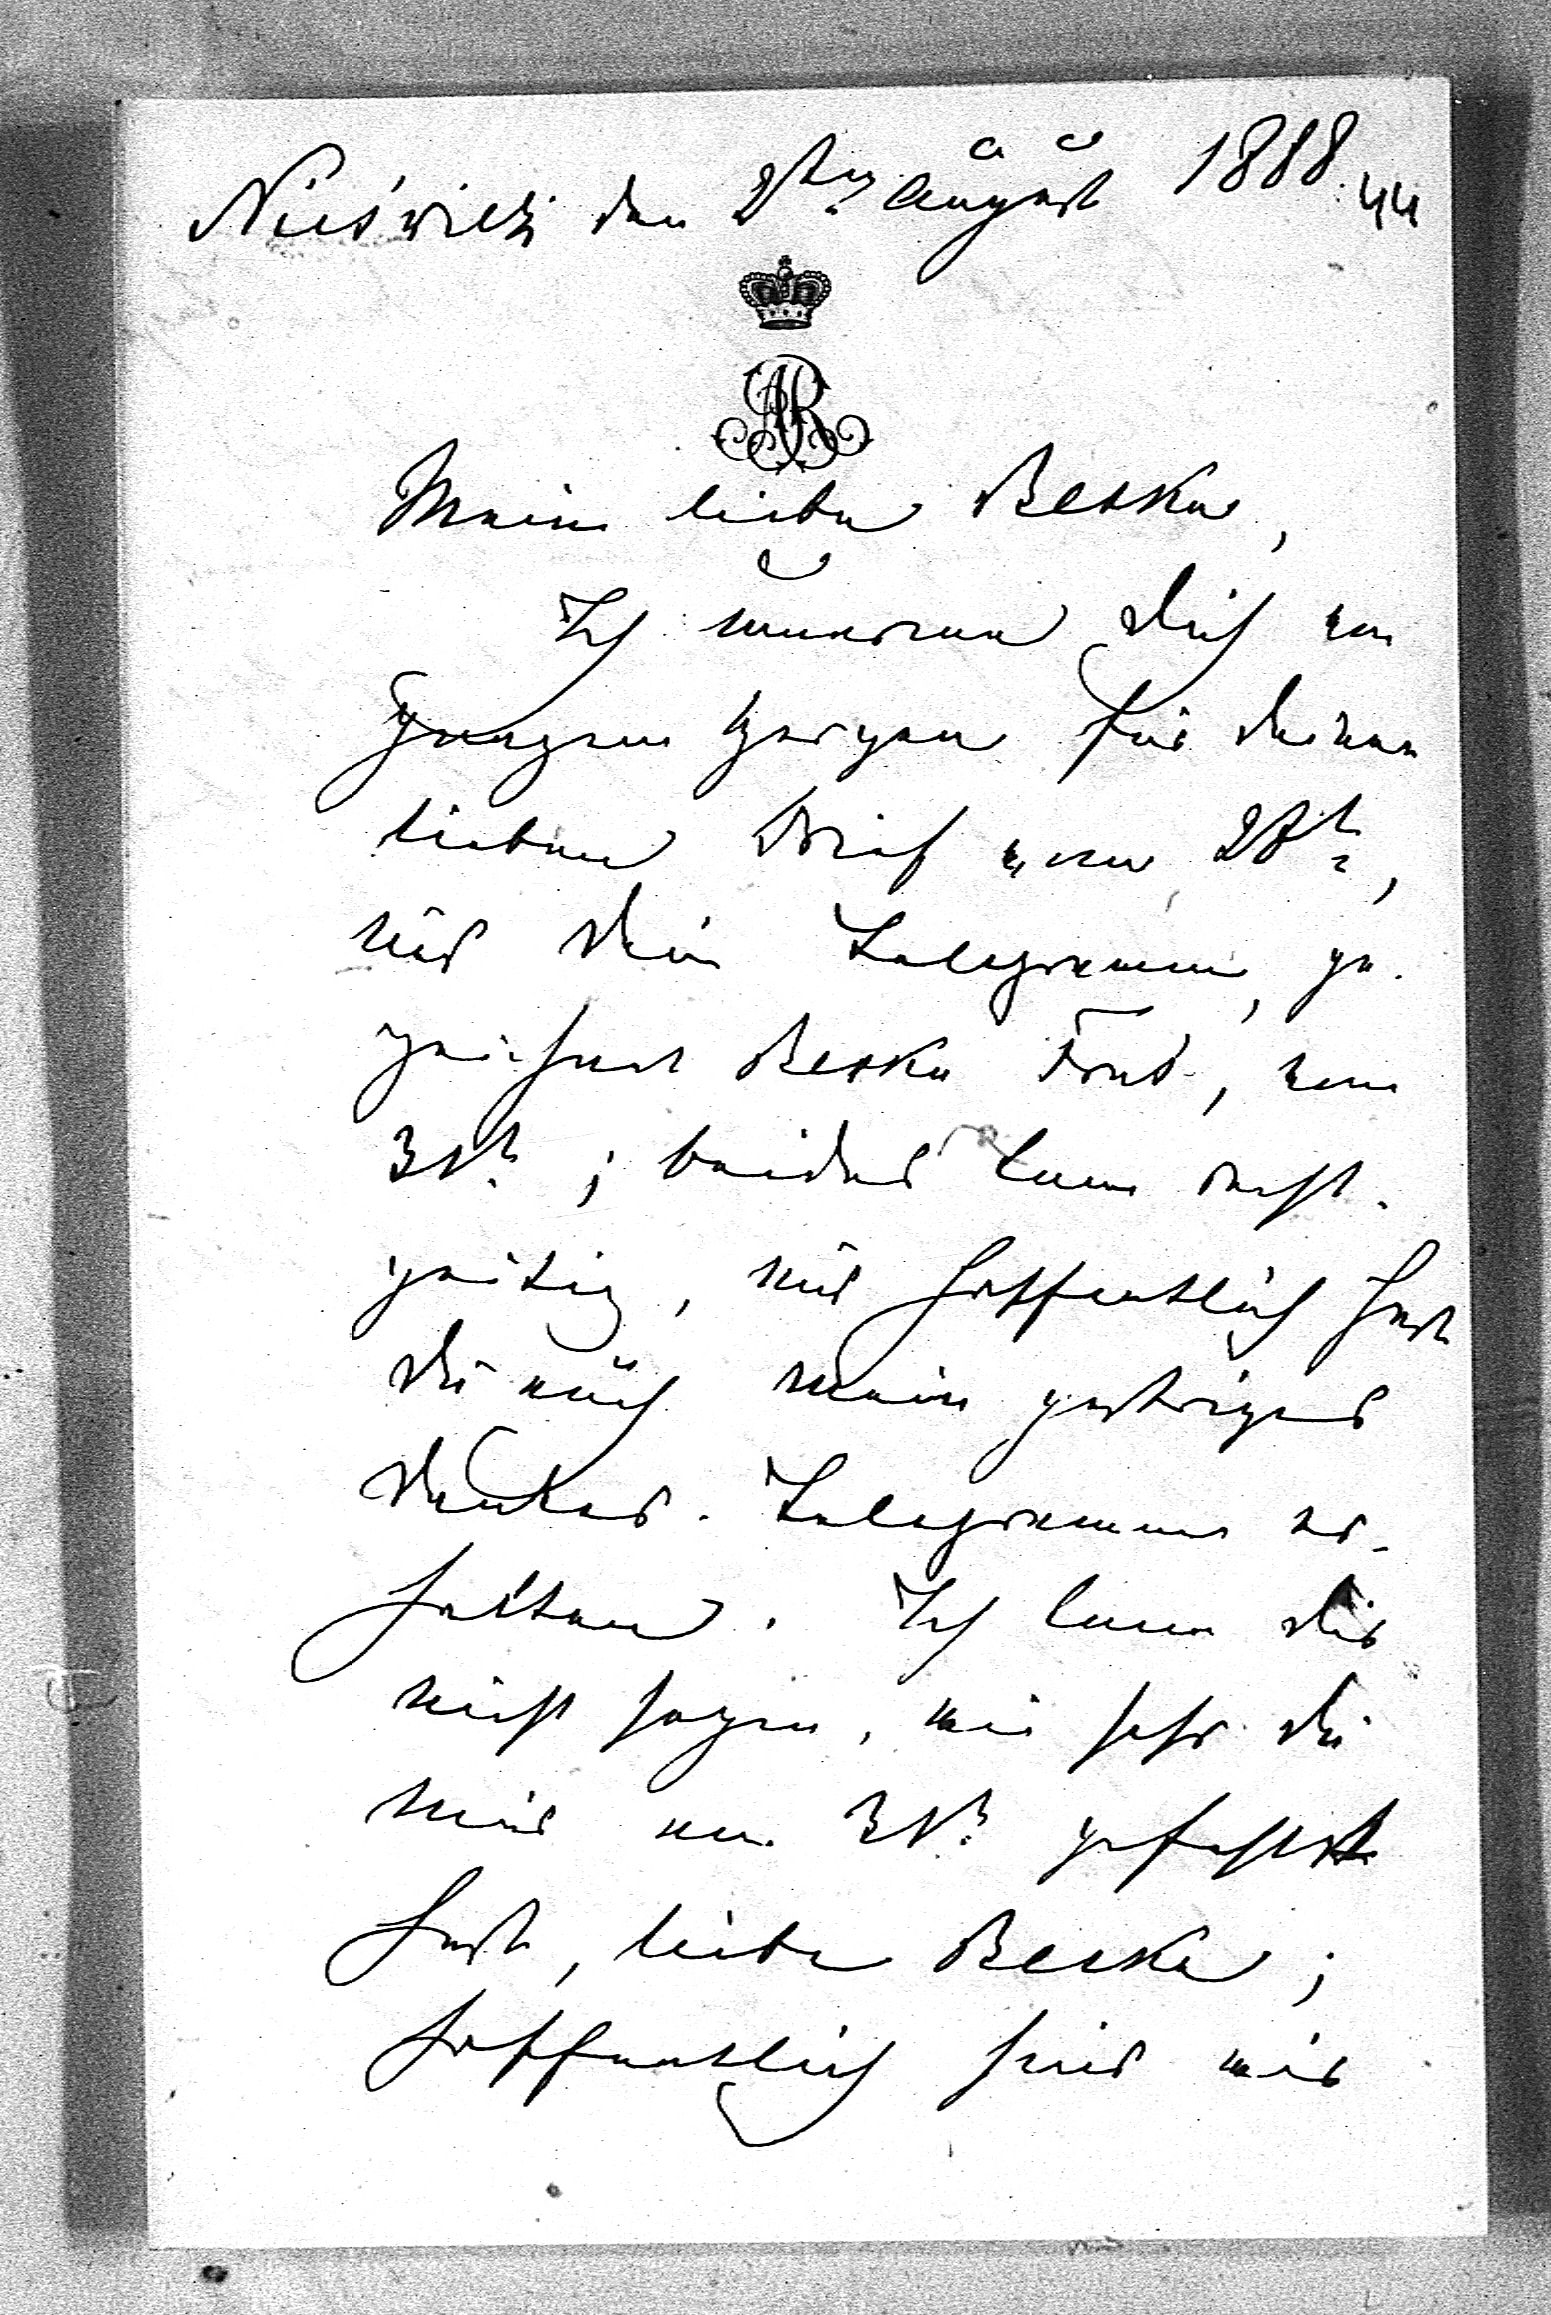 Nieświeź den 2ten August 1888. 44
AR
Meine liebe Betka,
Ich umarme Dich von
ganzem Herzen für Deinen
lieben Brief vom 28t,
und Dein Telegramm, ge-
zeichnet Betka, vom
31t; beides kam recht-
zeitig, und hoffentlich hast
Du auch mein gestriges
Dankes-Telegramm er-
halten. Ich kann Dir
nicht sagen, wie sehr Du
mir am 31t gefehlt
hast, liebe Betka;
hoffentlich sind wir